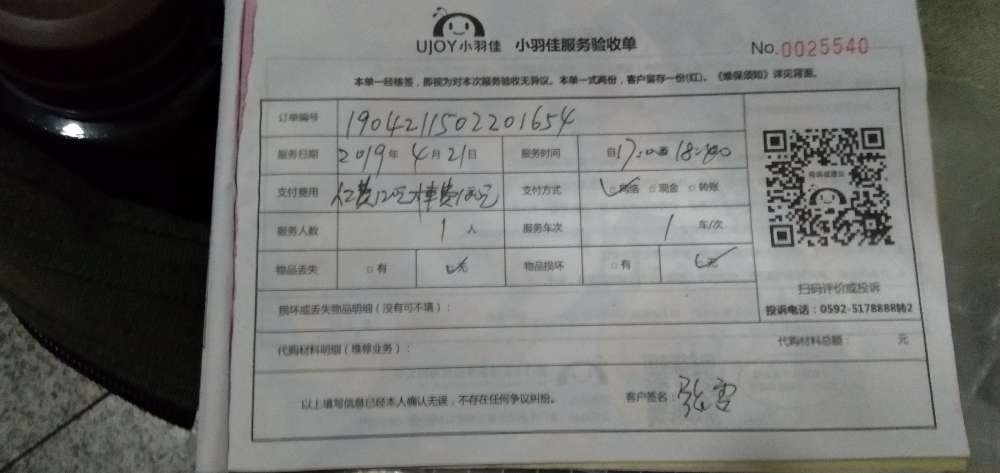 UJOY小羽佳 小羽佳服务验收单 No.0025540
本单一经核签，即视为对本次服务验收无异议。本单一式两份，客户留存一份(红)。《维保须知》详见背面。
订单编号 1904211502201654
服务日期 2019年4月21日 服务时间 自17:00至18:00
支付费用 支付方式 □网络 □现金 □转账
服务人数 1人 服务车次 1车/次
物品丢失 □有 □无 物品损坏 □有 □无
扫码评价或投诉
损坏或丢失物品明细（没有可不填）： 投诉电话：0592-5178888转2
代购材料明细（维修业务）： 代购材料总额： 元
以上填写信息已经本人确认无误，不存在任何争议纠纷。 客户签名